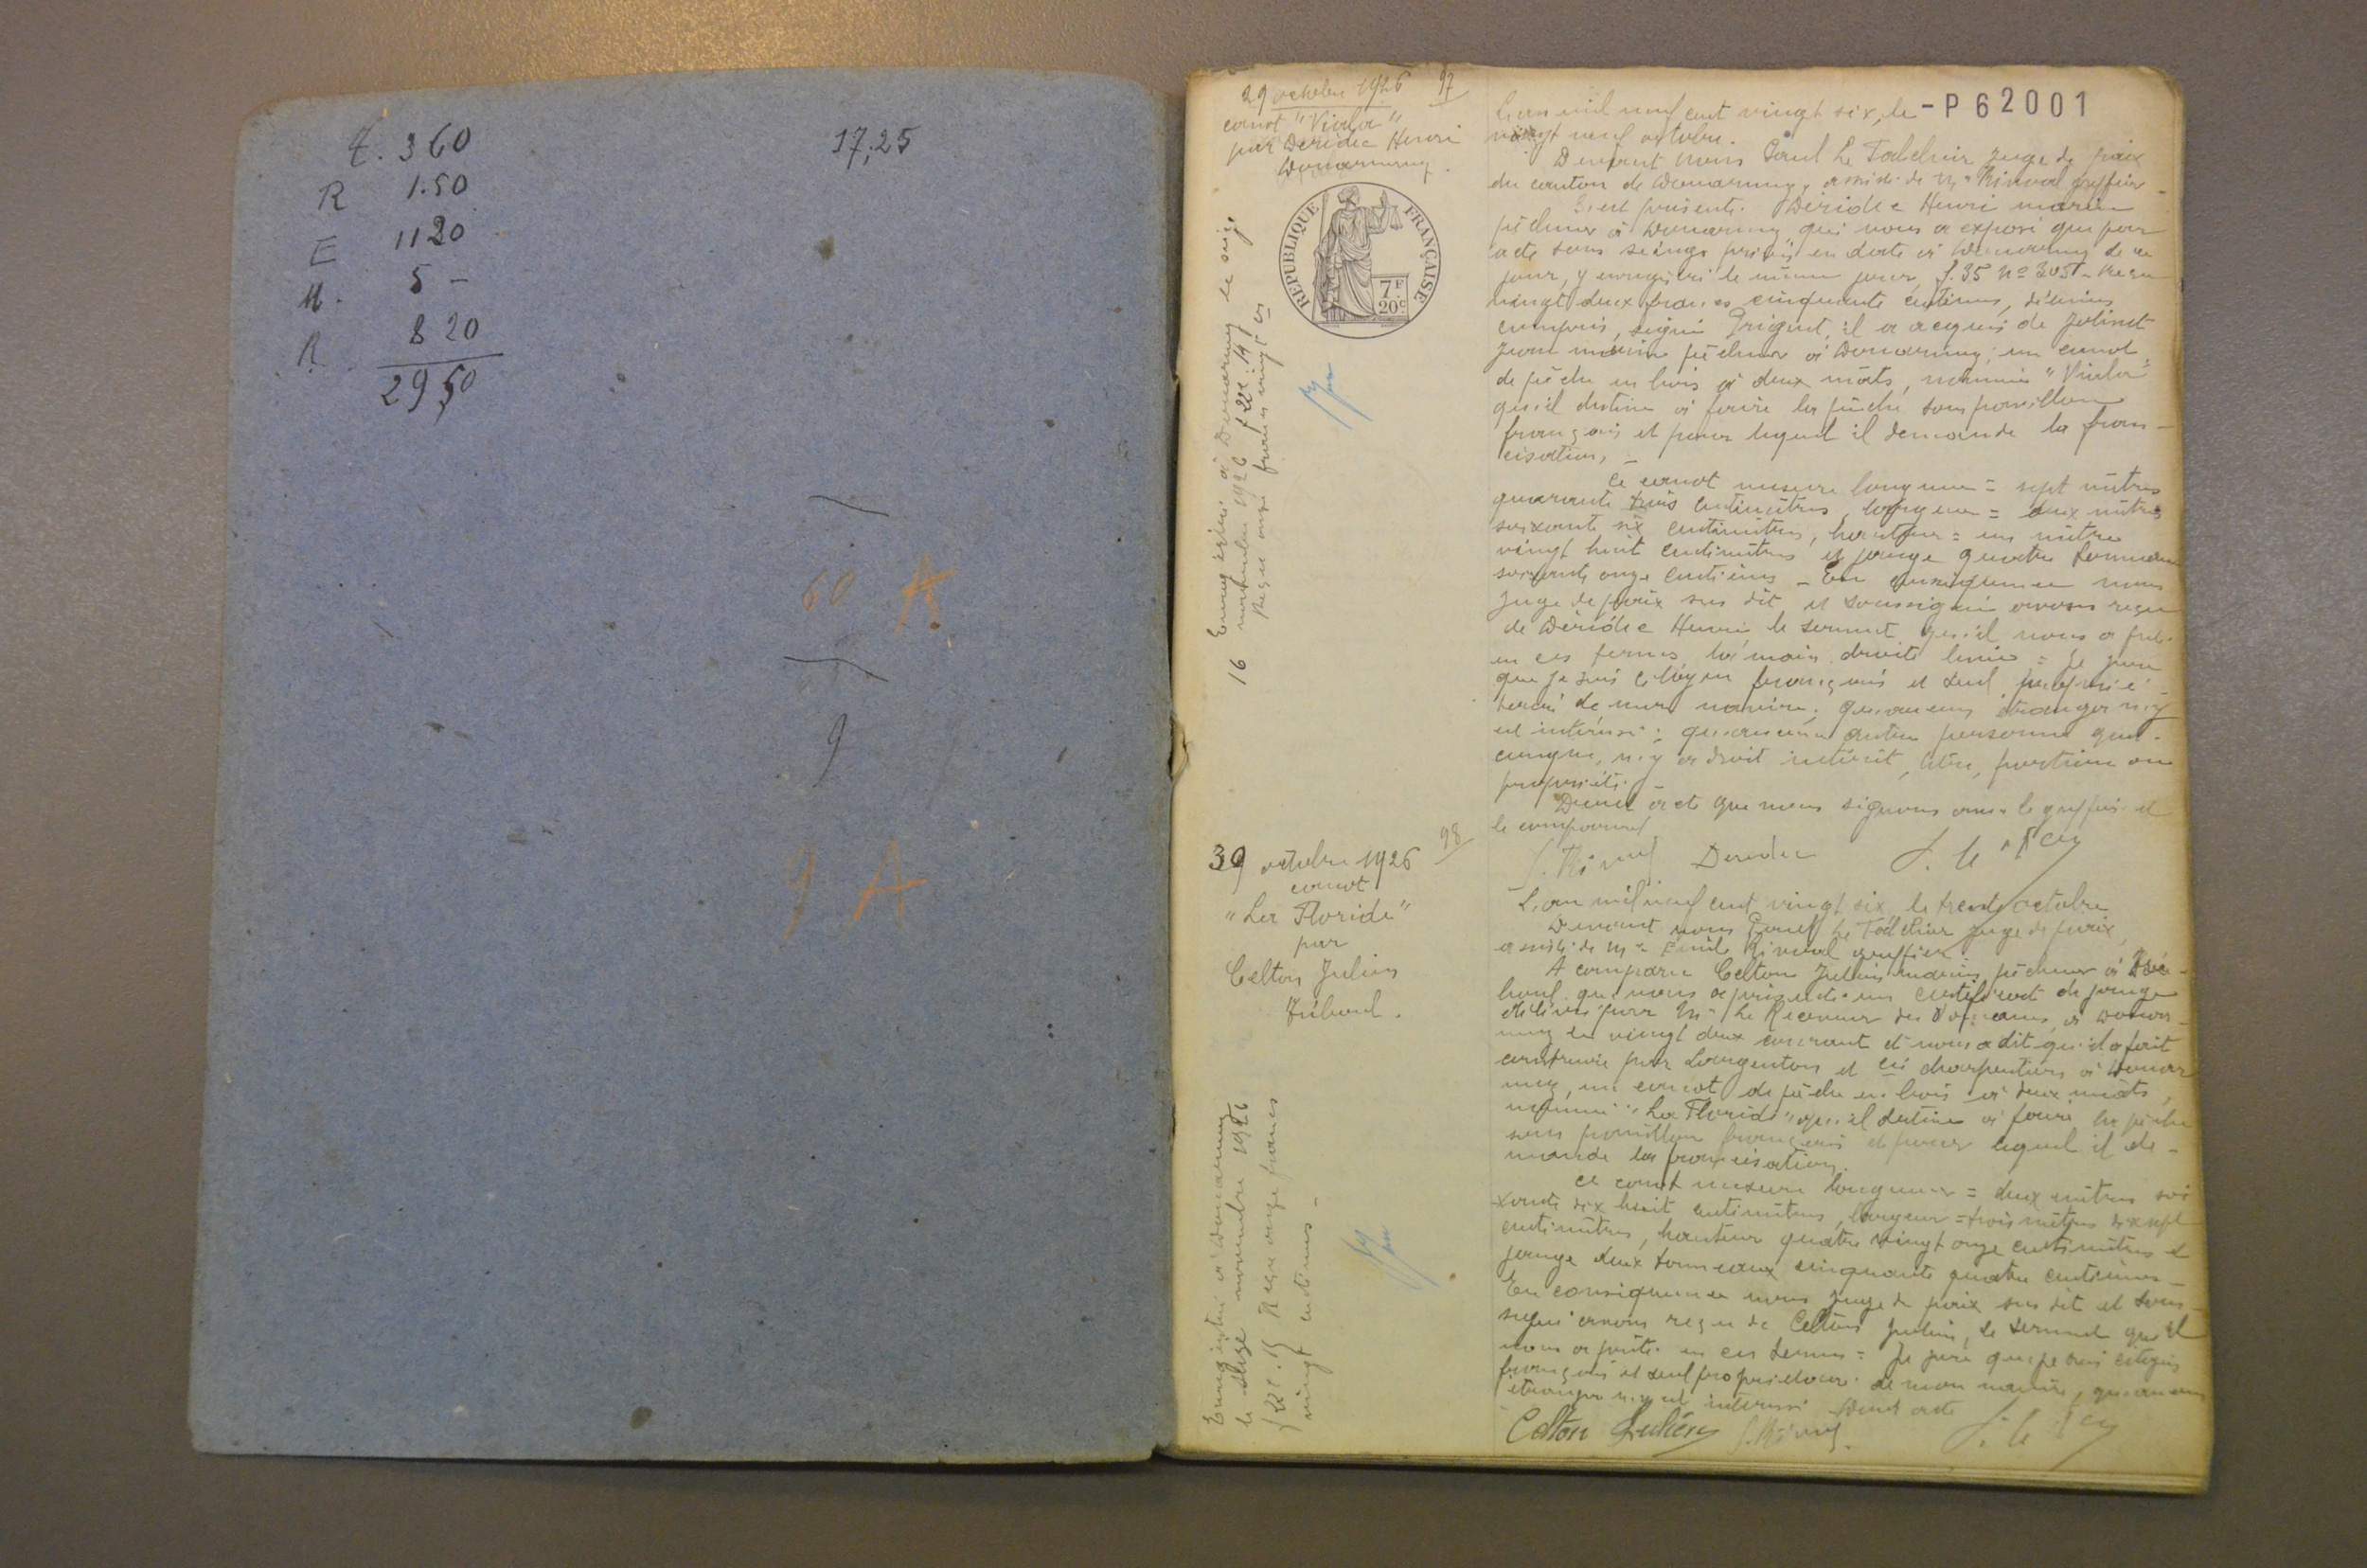 T. 3 60
R 1.50
E 11 20
M. 5 -
R. 8 20
29 50
17,25
60 A
9
9 A
29 octobre 1926 97
canot "Viala"
par Déridec Henri
Douarnenez.
REPUBLIQUE FRANÇAISE
7F
20c
Enregistré à Douarnenez le seize
16 novembre 1926 fo 22 c. 14
Reçu onze francs vingt cs
-P62001
L'an mil neuf cent vingt six, le
vingt neuf octobre.
Devant nous Paul Le Talchoir juge de paix
du canton de Douarnenez, assisté de Me Kinval greffier
S'est présenté Déridec Henri marin
pêcheur à Douarnenez qui nous a exposé que par
acte sous seings privés en date à Douarnenez de ce
jour, y enregistré le même jour, f. 35 no Reçu
vingt deux francs cinquante centimes, décimes
compris, signé Prigent, il a acquis de
Jean marin pêcheur à Douarnenez, un canot
de pêche en bois à deux mâts, nommé "Viala"
qu'il destine à faire la pêche sous pavillon
français et pour lequel il demande la fran-
cisation. -
Ce canot mesure longueur = sept mètres
quarante trois centimètres, largeur = deux mètres
soixante six centimètres, hauteur = un mètre
vingt huit centimètres et jauge quatre tonneaux
soixante onze centièmes - En conséquence nous
juge de paix sus dit et soussigné avons reçu
de Déridec Henri le serment qu'il nous a prêté
en ces termes, la main droite levée = Je jure
que je suis citoyen français et seul proprié-
taire de mon navire; qu'aucun étranger n'y
est intéressé; qu'aucune autre personne quel-
conque, n'y a droit intérêt, titre, portion ou
propriété. -
Donné acte que nous signons avec le greffier et
le comparant
Deridec
39 octobre 1926 98
canot
"La Floride"
par
Celton Julien
Tréboul.
Enregistré à Douarnenez
le seize novembre 1926
f 22 c. 15 Reçu onze francs
vingt centimes -
L'an mil neuf cent vingt six, le trente octobre
Devant nous Paul Le Talchoir juge de paix,
assisté de Me Emile Kinval greffier
A comparu Celton Julien marin pêcheur à Tré-
boul qui nous a présenté un certificat de jauge
délivré par Mr Le Receveur des Douanes, à Douar-
nenez le vingt deux courant et nous a dit qu'il a fait
construire par Largenton et Cie charpentiers à Douar
nenez, un canot de pêche en bois à deux mâts,
nommé "La Floride" qu'il destine à faire la pêche
sous pavillon français et pour lequel il de-
mande la francisation.
Ce canot mesure longueur = deux mètres soi
xante dix huit centimètres, largeur = trois mètres dix sept
centimètres, hauteur quatre vingt onze centimètres et
jauge deux tonneaux cinquante quatre centièmes -
En conséquence nous juge de paix sus dit et sous-
signé avons reçu de Celton Julien, le serment qu'il
nous a prêté en ces termes = Je jure que je suis citoyen
français et seul propriétaire de mon navire, qu'aucun
étranger n'y est intéressé Dont acte
Celton Julien